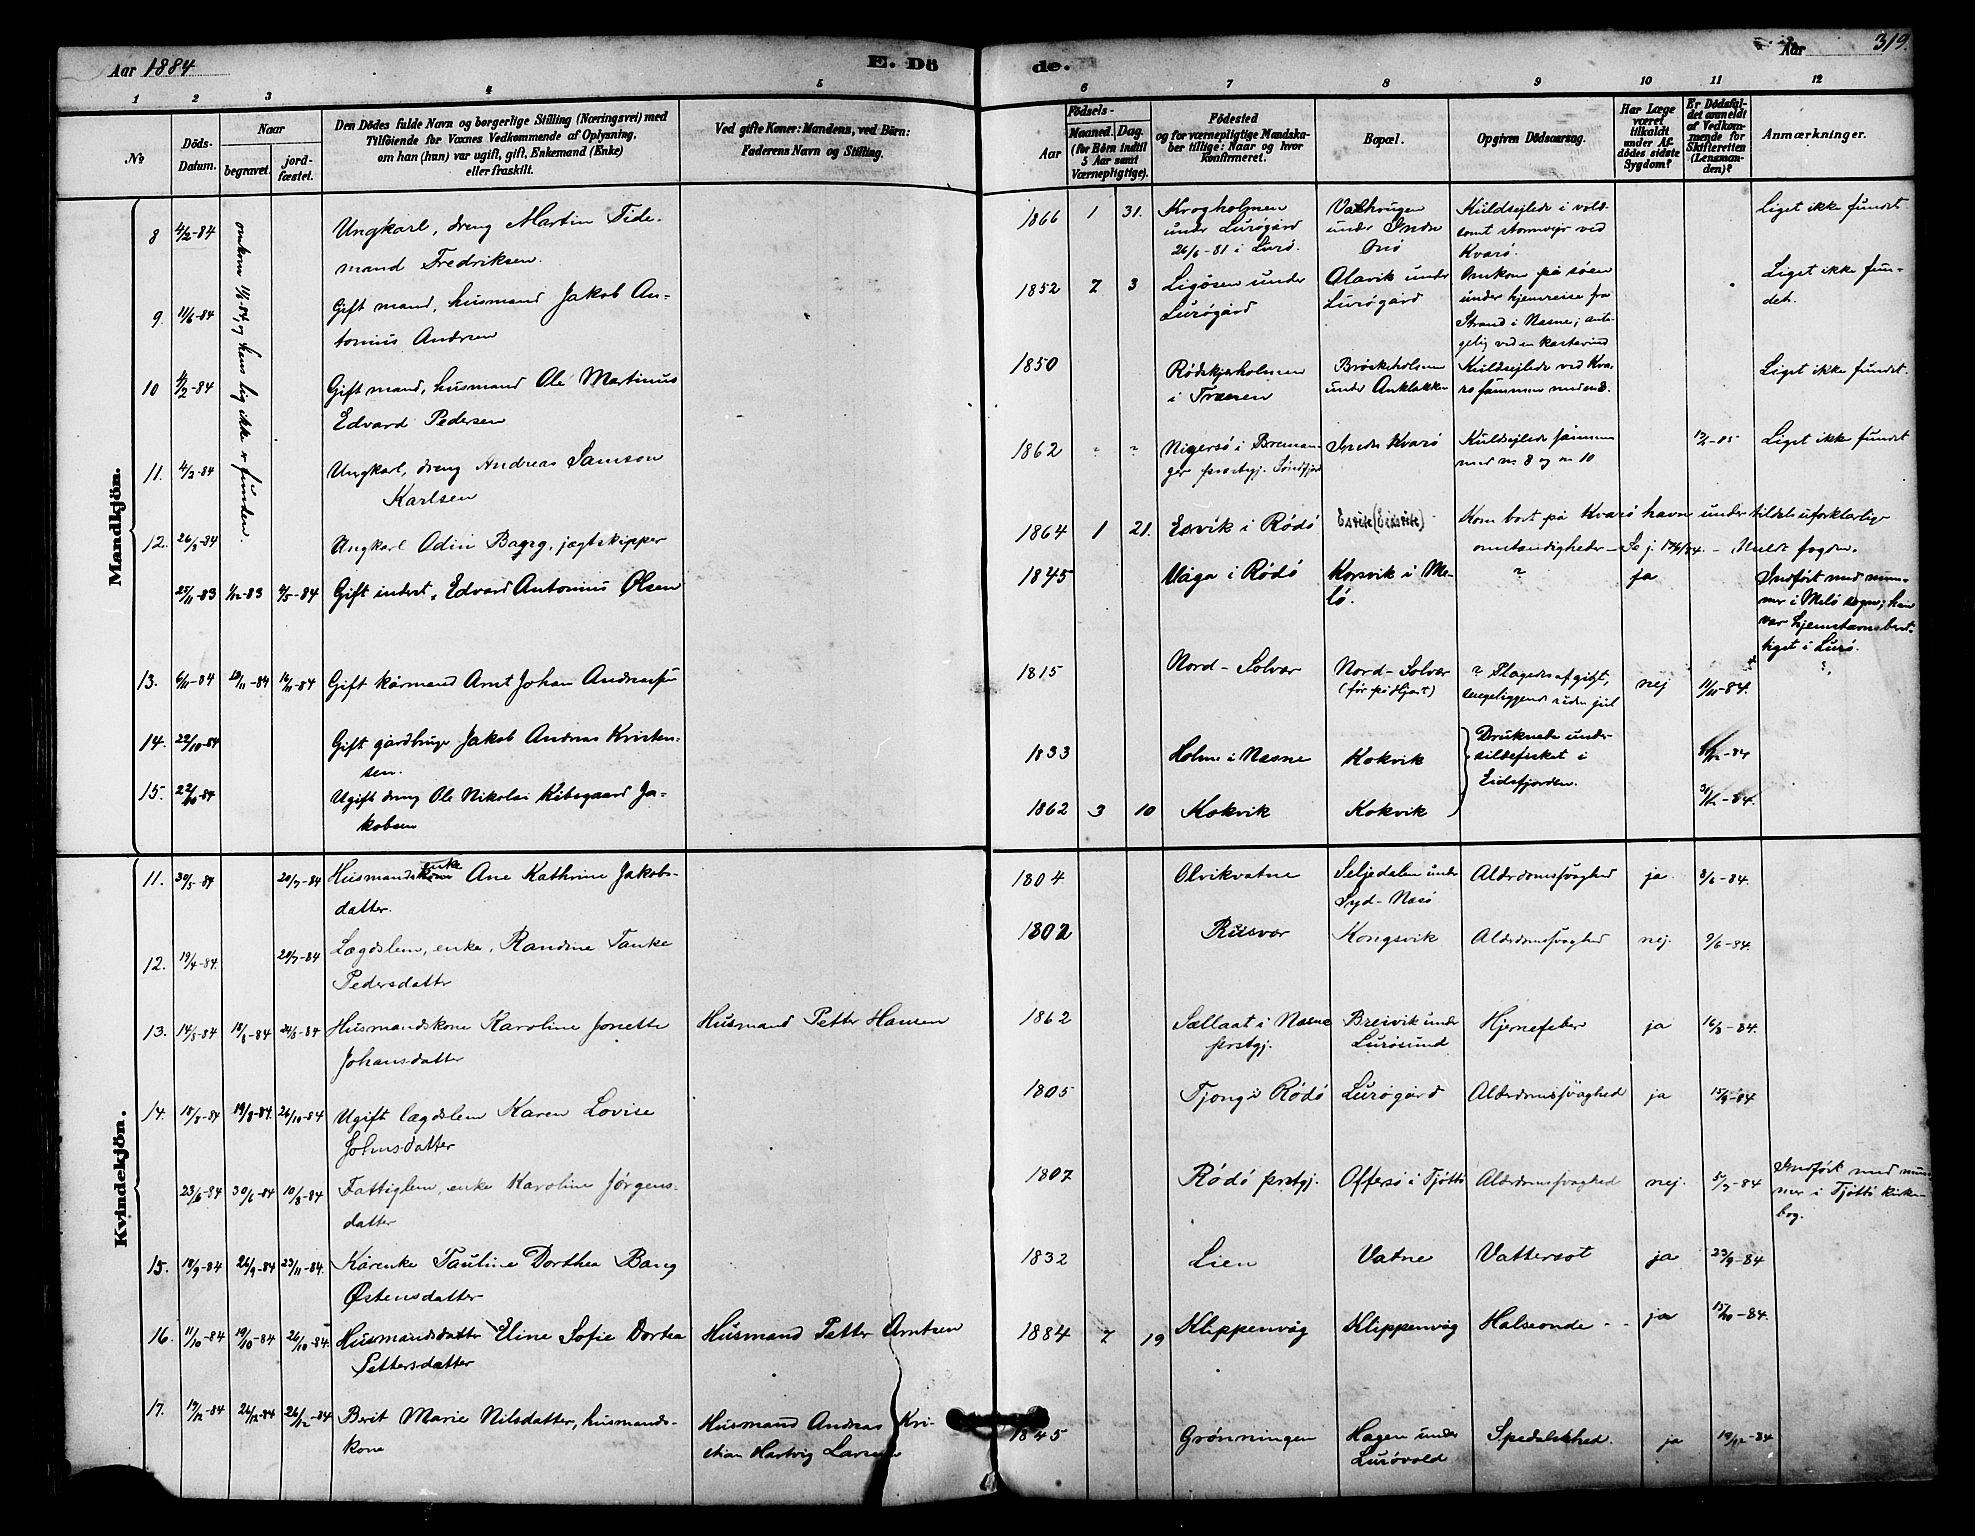 Aar 1884
E. Dö
de.
Aar
319.
1 2 3 4 5 6 7 8 9 10 11 12
No
Döds-
Datum.
Naar
begravet.
jord-
fæstet.
Den Dödes fulde Navn og borgerlige Stilling (Næringsvei) med
Tilföiende for Voxnes Vedkommende af Oplysning,
om han (hun) var ugift, gift, Enkemand (Enke)
eller fraskilt.
Ved gifte Koner: Mandens, ved Börn:
Faderens Navn og Stilling.
Födsels-
Aar
Maaned. Dag.
(for Börn indtil
5 Aar samt
Værnepligtige).
Födested
og for værnepligtige Mandska-
ber tillige: Naar og hvor
Konfirmeret.
Bopæl.
Opgiven Dödsaarsag.
Har Læge
været
tilkaldt
under Af-
dödes sidste
Sygdom?
Er Dödsfal-
det anmeldt
af Vedkom-
mende for
Skifteretten
(Lensman-
den)?
Anmærkninger.
Mandkjön.
omkom 11/6-84, og hens lig ikke er funden.
8 4/2-84 Ungkarl, dreng Martin Tide-
mand Fredriksen.
1866 1 31. Krogholmen
under Lurøgård
26/6-81 i Lurø.
under Indre
Kuldsejlede i vold-
somt stormvejr ved
Kvarø.
Liget ikke fundet
9. 11/6-84 Gift mand, husmand Jakob An-
tonius Andrsen
1852 7 3 Ligøsen under
Lurøgård
Olavik under
Lurøgård
Omkom på søen
under hjemreise fra
Strand i Næsne; anta-
gelig ved en kastevind
Liget ikke fun-
det.
10 4/2-84 Gift mand, husmand Ole Martinus
Edvard Pedersen
1850 Rödskjærholmen
i Trænen
under Anklakken
Kuldsejlede ved Kva-
rø sammen med no 8.
Liget ikke fundet.
11. 4/2-84 Ungkarl, dreng Andreas Samson
Karlsen
1862 " " Nigersö i Breman-
ger prestgj. Søndfjord
Indre Kvarö
Kuldsejlede sammen
med no 8 og no 10
Liget ikke fundet
12. 26/3-84 Ungkarl Odin Bagrg, jægtskipper
1864 1 21. Esvik i Rødö
Kom bort på Kvarö havn under tildels uforklarlige
omstændigheder
25/11-83 1/12-83 4/5-84 Gift inderst, Edvard Antonius Olsen
1845 Våga i Rödö Korsvik i Me-
lö. ? ja
Indført med num-
mer i Melö sogn; han
var hjemstavnsberet-
tiget i Lurø.
13. 6/11-84 10/11-84 16/11-84 Gift kårmand Arnt Johan Andreassen
1815 Nord-Solvær Nord-Solvær
(før på Hjart)
? Plagedes af gigt,
sengeliggende siden jul
nej 11/11-84.
14. 22/10-84 Gift gårdbruger Jakob Andreas Kristen-
sen.
1833 Holme i Næsne Kokvik
Druknede under
sildefisket i
Eidsfjorden.
15. 22/10-84 Ugift dreng Ole Nikolai Kibsgaard Ja-
kobsen
1862 3 10 Kokvik Kokvik
Kvindekjön.
11. 30/5-84 20/7-84 Husmandsenke Ane Kathrine Jakobs-
datter.
1804 Olvikvatne Seljedalen under
Syd-Nesö
Alderdomssvaghed ja. 3/6-84.
12. 19/4-84. 20/7-84 Lægdslem, enke, Randine Tanke
Pedersdatter
1802 Rüsvær Kongsvik Alderdomssvaghed nej. 9/6-84.
13. 14/8-84 18/8-84 24/8-84 Husmandskone Karoline Jonette
Johansdatter
Husmand Petter Hansen
1862 Sællaat i Næsne
prstgj.
Breivik under
Lurøsund
Hjernefeber ja 16/8-84.
14. 18/8-84 19/8-84. 26/10-84 Ugift lægdslem Karen Lovise
Johnsdatter
1805 Tjong i Rödö Lurøgård Alderdomssvaghed ja 15/9-84
23/6-84 30/6-84 10/8-84 Fattiglem, enke Karoline Jørgens-
datter
1807 Rödö prstgj. Offersö i Tjøtta Alderdomssvaghed nej. 5/7-84
Indført med num-
mer i Tjøtta kirke-
bog.
15. 18/9-84 26/9-84 23/11-84. Kårenke Pauline Dorthea Bang
Østensdatter
1832 Lien Vatne Vattersot ja 23/9-84
16. 11/10-84 19/10-84 26/10-84. Husmandsdatter Eline Sofie Dortea
Pettersdatter
Husmand Petter Arntsen
1884 7 19 Klippenvåg Klippenvåg Halsonde - - ja 15/10-84.
17. 19/12-84 26/12-84 26/12-84 Berit Marie Nilsdatter, husmands-
kone
Husmand Andreas Kri-
stian Hartvig Larsen
1845 Grønningen Hagen under
Lurøvold
Spedalskhed. ja 19/12-84